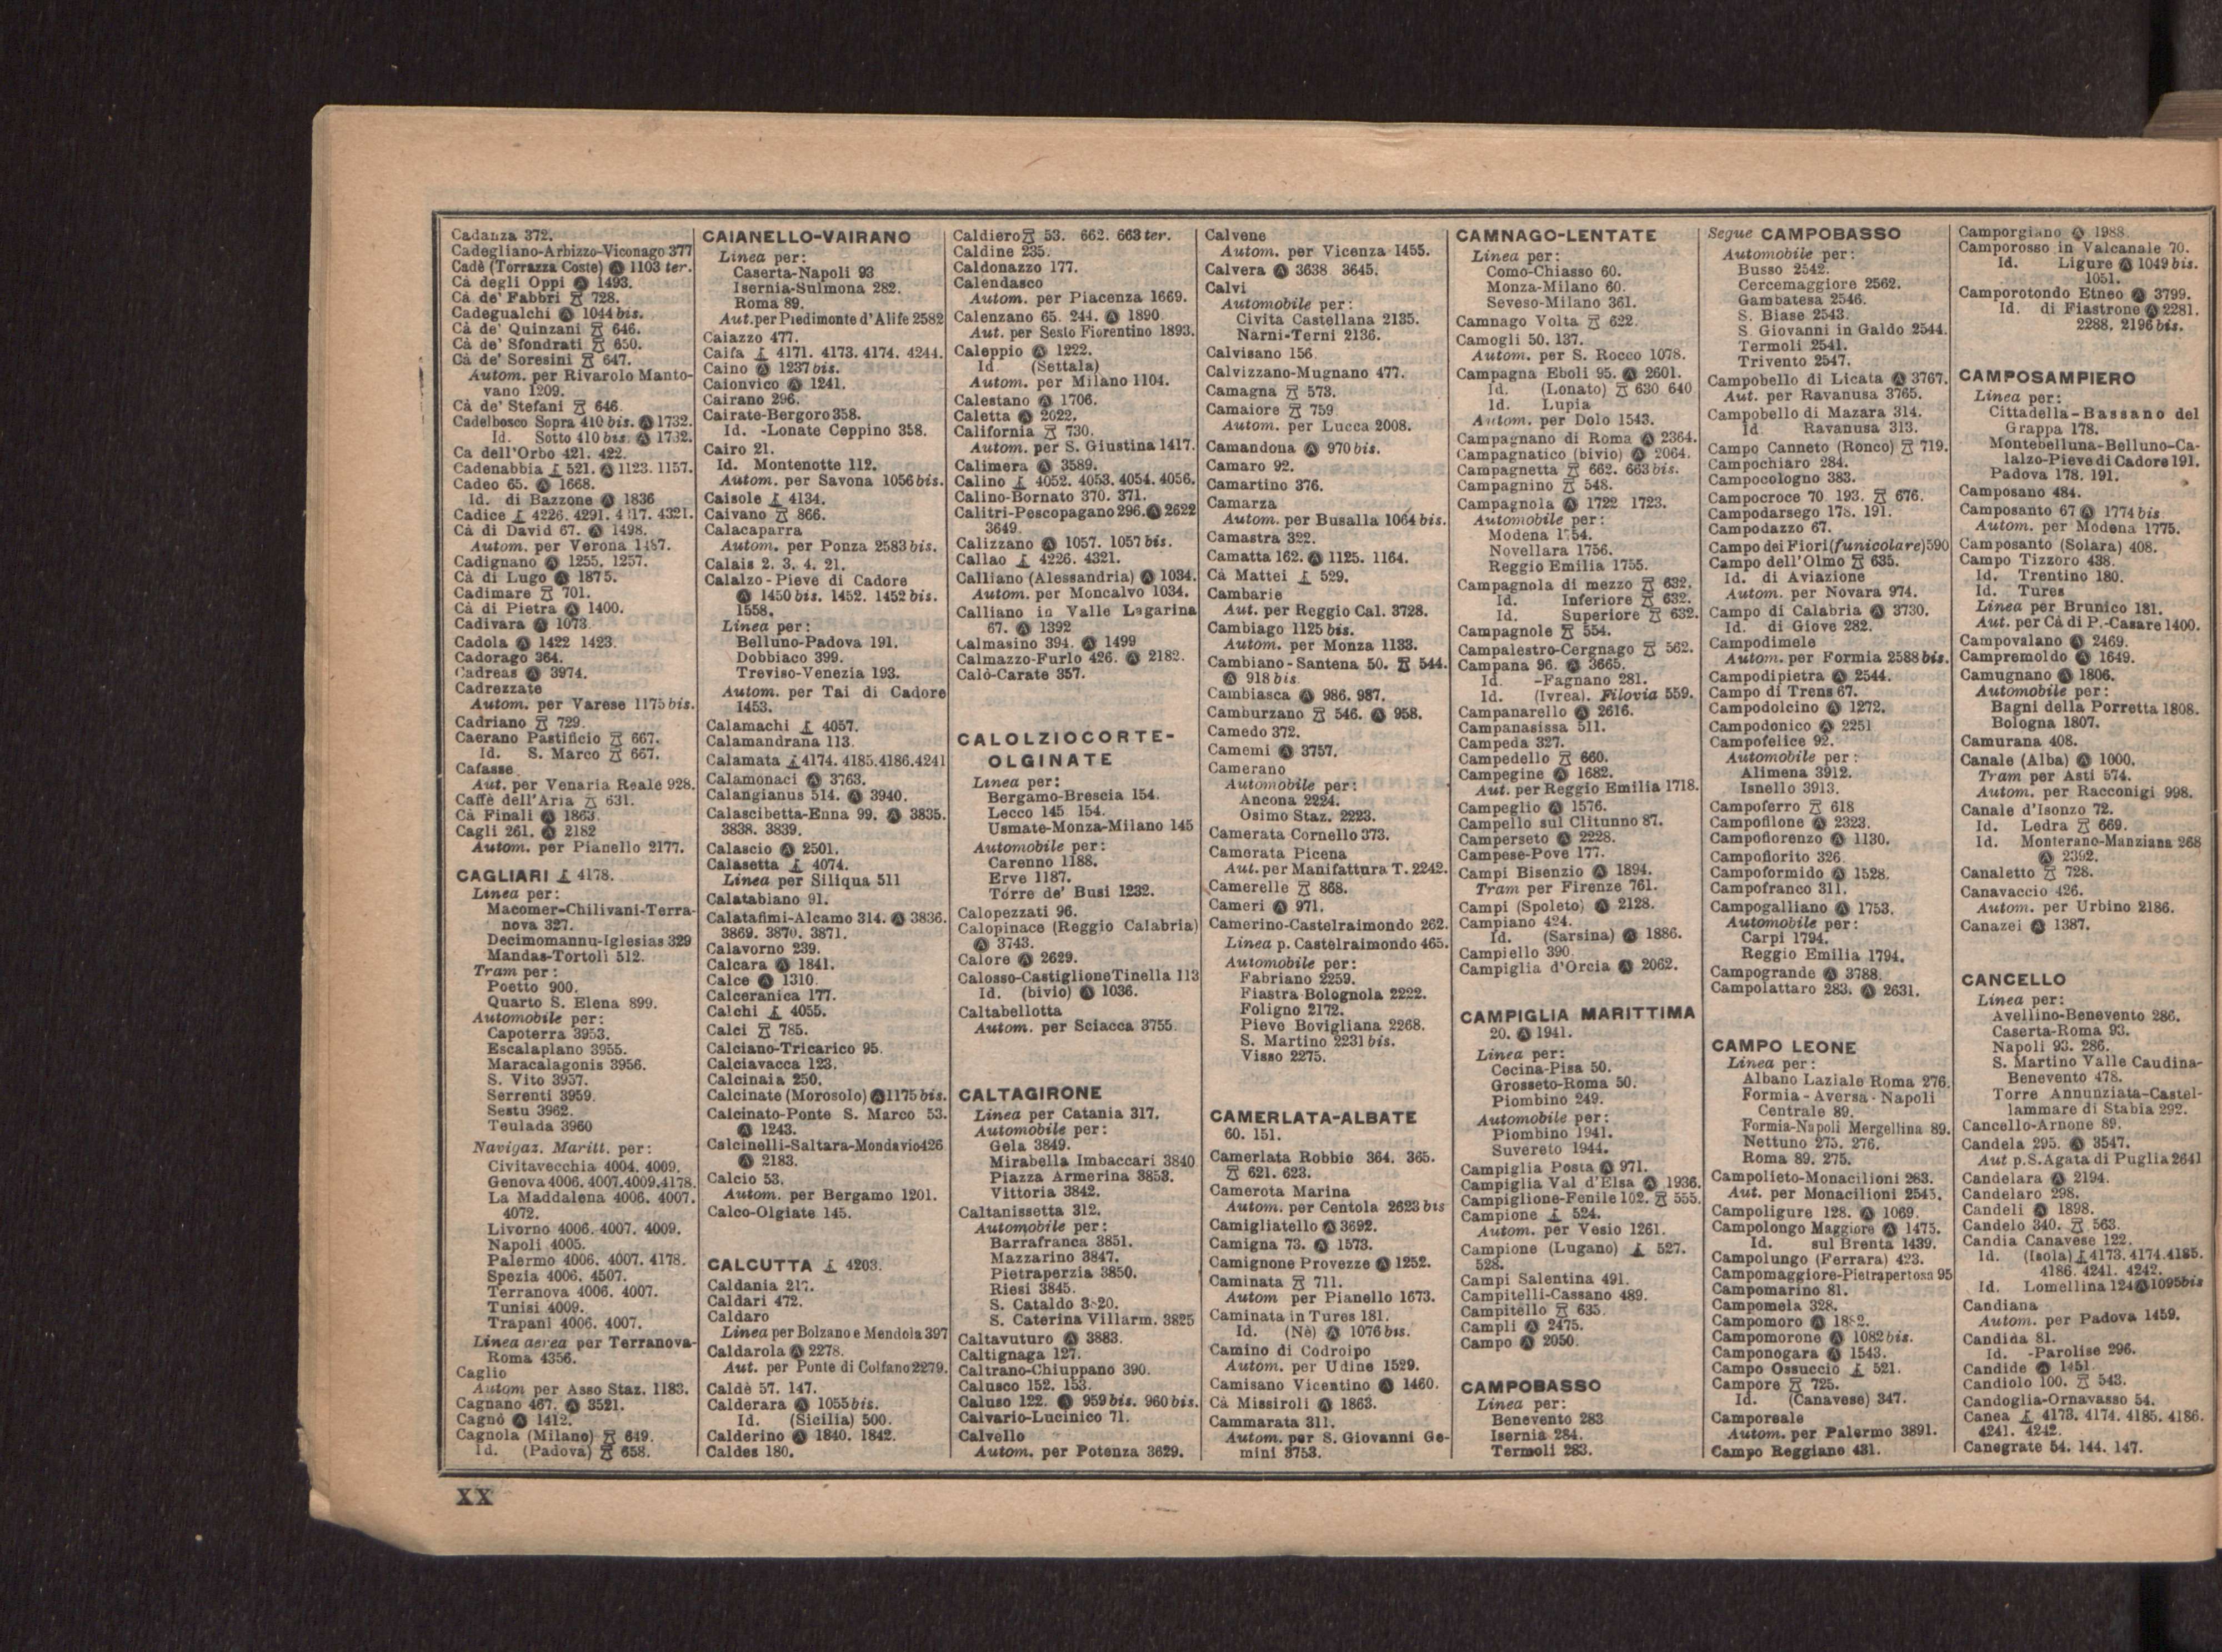 Cadanza 372.
Cadegliano-Arbizzo-Viconago 377
Cadè (Torrazza Coste) Ⓐ 1103 ter.
Cà degli Oppi Ⓐ 1493.
Cà de' Fabbri 728.
Cadegualchi Ⓐ 1044 bis.
Cà de' Quinzani 646.
Cà de' Sfondrati 650.
Cà de' Soresini 647.
Autom. per Rivarolo Manto-
vano 1209.
Cà de' Stefani 646.
Cadelbosco Sopra 410 bis. Ⓐ 1732.
Id. Sotto 410 bis. Ⓐ 1732.
Ca dell'Orbo 421. 422.
Cadenabbia 521. Ⓐ 1123. 1157.
Cadeo 65. Ⓐ 1668.
Id. di Bazzone Ⓐ 1836
Cadice 4226. 4291. 4317. 4321.
Cà di David 67. Ⓐ 1498.
Autom. per Verona 1487.
Cadignano Ⓐ 1255. 1257.
Cà di Lugo Ⓐ 1875.
Cadimare 701.
Cà di Pietra Ⓐ 1400.
Cadivara Ⓐ 1073
Cadola Ⓐ 1422 1423.
Cadorago 364.
Cadreas Ⓐ 3974.
Cadrezzate
Autom. per Varese 1175 bis.
Cadriano 729.
Caerano Pastificio 667.
Id. S. Marco 667.
Cafasse
Aut. per Venaria Reale 928.
Caffè dell'Aria 631.
Cà Finali Ⓐ 1863.
Cagli 261. Ⓐ 2182
Autom. per Pianello 2177.
CAGLIARI 4178.
Linea per:
Macomer-Chilivani-Terra-
nova 327.
Decimomannu-Iglesias 329
Mandas-Tortolì 512.
Tram per:
Poetto 900.
Quarto S. Elena 899.
Automobile per:
Capoterra 3953.
Escalaplano 3955.
Maracalagonis 3956.
S. Vito 3957.
Serrenti 3959.
Sestu 3962.
Teulada 3960
Navigaz. Maritt. per:
Civitavecchia 4004. 4009.
Genova 4006. 4007. 4009. 4178.
La Maddalena 4006. 4007.
4072.
Livorno 4006. 4007. 4009.
Napoli 4005.
Palermo 4006. 4007. 4178.
Spezia 4006. 4507.
Terranova 4006. 4007.
Tunisi 4009.
Trapani 4006. 4007.
Linea aerea per Terranova-
Roma 4356.
Caglio
Autom per Asso Staz. 1183.
Cagnano 467. Ⓐ 3521.
Cagnò Ⓐ 1412.
Cagnola (Milano) 649.
Id. (Padova) 658.
CAIANELLO-VAIRANO
Linea per:
Caserta-Napoli 93
Isernia-Sulmona 282.
Roma 89.
Aut. per Piedimonte d'Alife 2582
Caiazzo 477.
Caifa 4171. 4173. 4174. 4244.
Caino Ⓐ 1237 bis.
Caionvico Ⓐ 1241.
Cairano 296.
Cairate-Bergoro 358.
Id. -Lonate Ceppino 358.
Cairo 21.
Id. Montenotte 112.
Autom. per Savona 1056 bis.
Caisole 4134.
Caivano 866.
Calacaparra
Autom. per Ponza 2583 bis.
Calais 2. 3. 4. 21.
Calalzo-Pieve di Cadore
Ⓐ 1450 bis. 1452. 1452 bis.
1558.
Linea per:
Belluno-Padova 191.
Dobbiaco 399.
Treviso-Venezia 193.
Autom. per Tai di Cadore
1453.
Calamachi 4057.
Calamandrana 113.
Calamata 4174. 4185. 4186. 4241
Calamonaci Ⓐ 3763.
Calangianus 514. Ⓐ 3940.
Calascibetta-Enna 99. Ⓐ 3835.
3838. 3839.
Calascio Ⓐ 2501.
Calasetta 4074.
Linea per Siliqua 511
Calatabiano 91.
Calatafimi-Alcamo 314. Ⓐ 3836.
3869. 3870. 3871.
Calavorno 239.
Calcara Ⓐ 1841.
Calce Ⓐ 1310.
Calceranica 177.
Calchi 4055.
Calci 785.
Calciano-Tricarico 95.
Calciavacca 123.
Calcinaia 250.
Calcinate (Morosolo) Ⓐ 1175 bis.
Calcinato-Ponte S. Marco 53.
Ⓐ 1243.
Calcinelli-Saltara-Mondavio 426
Ⓐ 2183.
Calcio 53.
Autom. per Bergamo 1201.
Calco-Olgiate 145.
CALCUTTA 4203.
Caldania 217.
Caldari 472.
Caldaro
Linea per Bolzano e Mendola 397
Caldarola Ⓐ 2278.
Aut. per Ponte di Colfano 2279.
Caldè 57. 147.
Calderara Ⓐ 1055 bis.
Id. (Sicilia) 500.
Calderino Ⓐ 1840. 1842.
Caldes 180.
Caldiero 53. 662. 663 ter.
Caldine 235.
Caldonazzo 177.
Calendasco
Autom. per Piacenza 1669.
Calenzano 65. 244. Ⓐ 1890
Aut. per Sesto Fiorentino 1893.
Caleppio Ⓐ 1222.
Id (Settala)
Autom. per Milano 1104.
Calestano Ⓐ 1706.
Caletta Ⓐ 2022.
California 730.
Autom. per S. Giustina 1417.
Calimera Ⓐ 3589.
Calino 4052. 4053. 4054. 4056.
Calino-Bornato 370. 371.
Calitri-Pescopagano 296. Ⓐ 2622
3649.
Calizzano Ⓐ 1057. 1057 bis.
Callao 4226. 4321.
Calliano (Alessandria) Ⓐ 1034.
Autom. per Moncalvo 1034.
Calliano in Valle Lagarina
67. Ⓐ 1392
Calmasino 394. Ⓐ 1499
Calmazzo-Furlo 426. Ⓐ 2182.
Calò-Carate 357.
CALOLZIOCORTE-
OLGINATE
Linea per:
Bergamo-Brescia 154.
Lecco 145 154.
Usmate-Monza-Milano 145
Automobile per:
Carenno 1188.
Erve 1187.
Torre de' Busi 1232.
Calopezzati 96.
Calopinace (Reggio Calabria)
Ⓐ 3743.
Calore Ⓐ 2629.
Calosso-Castiglione Tinella 113
Id. (bivio) Ⓐ 1036.
Caltabellotta
Autom. per Sciacca 3755.
CALTAGIRONE
Linea per Catania 317.
Automobile per:
Gela 3849.
Mirabella Imbaccari 3840
Piazza Armerina 3853.
Vittoria 3842.
Caltanissetta 312.
Automobile per:
Barrafranca 3851.
Mazzarino 3847.
Pietraperzia 3850.
Riesi 3845.
S. Cataldo 3820.
S. Caterina Villarm. 3825
Caltavuturo Ⓐ 3883.
Caltignaga 127.
Caltrano-Chiuppano 390.
Calusco 152. 153.
Caluso 122. Ⓐ 959 bis. 960 bis.
Calvario-Lucinico 71.
Calvello
Autom. per Potenza 3629.
Calvene
Autom. per Vicenza 1455.
Calvera Ⓐ 3638. 3645.
Calvi
Automobile per:
Civita Castellana 2135.
Narni-Terni 2136.
Calvisano 156.
Calvizzano-Mugnano 477.
Camagna 573.
Camaiore 759
Autom. per Lucca 2008.
Camandona Ⓐ 970 bis.
Camaro 92.
Camartino 376.
Camarza
Autom. per Busalla 1064 bis.
Camastra 322.
Camatta 162. Ⓐ 1125. 1164.
Cà Mattei 529.
Cambarie
Aut. per Reggio Cal. 3728.
Cambiago 1125 bis.
Autom. per Monza 1133.
Cambiano-Santena 50. 544.
Ⓐ 918 bis
Cambiasca Ⓐ 986. 987.
Camburzano 546. Ⓐ 958.
Camedo 372.
Camemi Ⓐ 3757.
Camerano
Automobile per:
Ancona 2224.
Osimo Staz. 2223.
Camerata Cornello 373.
Camerata Picena
Aut. per Manifattura T. 2242.
Camerelle 868.
Cameri Ⓐ 971.
Camerino-Castelraimondo 262.
Linea p. Castelraimondo 465.
Automobile per:
Fabriano 2259.
Fiastra Bolognola 2222.
Foligno 2172.
Pieve Bovigliana 2268.
S. Martino 2231 bis.
Visso 2275.
CAMERLATA-ALBATE
60. 151.
Camerlata Robbio 364. 365.
621. 623.
Camerota Marina
Autom. per Centola 2623 bis
Camigliatello Ⓐ 3692.
Camigna 73. Ⓐ 1573.
Camignone Provezze Ⓐ 1252.
Caminata 711.
Autom per Pianello 1673.
Caminata in Tures 181.
Id. (Nè) Ⓐ 1076 bis.
Camino di Codroipo
Autom. per Udine 1529.
Camisano Vicentino Ⓐ 1460.
Cà Missiroli Ⓐ 1863.
Cammarata 311.
Autom. per S. Giovanni Ge-
mini 3753.
CAMNAGO-LENTATE
Linea per:
Como-Chiasso 60.
Monza-Milano 60.
Seveso-Milano 361.
Camnago Volta 622.
Camogli 50. 137.
Autom. per S. Rocco 1078.
Campagna Eboli 95. Ⓐ 2601.
Id. (Lonato) 630 640
Id. Lupia
Autom. per Dolo 1543.
Campagnano di Roma Ⓐ 2364.
Campagnatico (bivio) Ⓐ 2064.
Campagnetta 662. 663 bis.
Campagnino 548.
Campagnola Ⓐ 1722 1723.
Automobile per:
Modena 1754.
Novellara 1756.
Reggio Emilia 1755.
Campagnola di mezzo 632.
Id. Inferiore 632.
Id. Superiore 632.
Campagnole 554.
Campalestro-Cergnago 562.
Campana 96. Ⓐ 3665.
Id. -Fagnano 281.
Id. (Ivrea). Filovia 559.
Campanarello Ⓐ 2616.
Campanasissa 511.
Campeda 327.
Campedello 660.
Campegine Ⓐ 1682.
Aut. per Reggio Emilia 1718.
Campeglio Ⓐ 1576.
Campello sul Clitunno 87.
Camperseto Ⓐ 2228.
Campese-Pove 177.
Campi Bisenzio Ⓐ 1894.
Tram per Firenze 761.
Campi (Spoleto) Ⓐ 2128.
Campiano 424.
Id. (Sarsina) Ⓐ 1886.
Campiello 390.
Campiglia d'Orcia Ⓐ 2062.
CAMPIGLIA MARITTIMA
20. Ⓐ 1941.
Linea per:
Cecina-Pisa 50.
Grosseto-Roma 50.
Piombino 249.
Automobile per:
Piombino 1941.
Suvereto 1944.
Campiglia Posta Ⓐ 971.
Campiglia Val d'Elsa Ⓐ 1936.
Campiglione-Fenile 102. 555.
Campione 524.
Autom. per Vesio 1261.
Campione (Lugano) 527.
528.
Campi Salentina 491.
Campitelli-Cassano 489.
Campitello 635.
Campli Ⓐ 2475.
Campo Ⓐ 2050.
CAMPOBASSO
Linea per:
Benevento 283
Isernia 284.
Termoli 283.
Segue CAMPOBASSO
Automobile per:
Busso 2542.
Cercemaggiore 2562.
Gambatesa 2546.
S. Biase 2543.
S. Giovanni in Galdo 2544.
Termoli 2541.
Trivento 2547.
Campobello di Licata Ⓐ 3767.
Aut. per Ravanusa 3765.
Campobello di Mazara 314.
Id. Ravanusa 313.
Campo Canneto (Ronco) 719.
Campochiaro 284.
Campocologno 383.
Campocroce 70. 193. 676.
Campodarsego 178. 191.
Campodazzo 67.
Campo dei Fiori (funicolare) 590
Campo dell'Olmo 635.
Id. di Aviazione
Autom. per Novara 974.
Campo di Calabria Ⓐ 3730.
Id. di Giove 282.
Campodimele
Autom. per Formia 2588 bis.
Campodipietra Ⓐ 2544.
Campo di Trens 67.
Campodolcino Ⓐ 1272.
Campodonico Ⓐ 2251
Campofelice 92.
Automobile per:
Alimena 3912.
Isnello 3913.
Campoferro 618
Campofilone Ⓐ 2323.
Campofiorenzo Ⓐ 1130.
Campofiorito 326
Campoformido Ⓐ 1528.
Campofranco 311.
Campogalliano Ⓐ 1753.
Automobile per:
Carpi 1794.
Reggio Emilia 1794.
Campogrande Ⓐ 3788.
Campolattaro 283. Ⓐ 2631.
CAMPO LEONE
Linea per:
Albano Laziale Roma 276.
Formia-Aversa-Napoli
Centrale 89.
Formia-Napoli Mergellina 89.
Nettuno 275. 276.
Roma 89. 275.
Campolieto-Monacilioni 283.
Aut. per Monacilioni 2545.
Campoligure 128. Ⓐ 1069.
Campolongo Maggiore Ⓐ 1475.
Id. sul Brenta 1439.
Campolungo (Ferrara) 423.
Campomaggiore-Pietrapertosa 95
Campomarino 81.
Campomela 328.
Campomoro Ⓐ 1882.
Campomorone Ⓐ 1082 bis.
Camponogara Ⓐ 1543.
Campo Ossuccio 521.
Campore 725.
Id. (Canavese) 347.
Camporeale
Autom. per Palermo 3891.
Campo Reggiano 431.
Camporgiano Ⓐ 1988.
Camporosso in Valcanale 70.
Id. Ligure Ⓐ 1049 bis.
1051.
Camporotondo Etneo Ⓐ 3799.
Id. di Fiastrone Ⓐ 2281.
2288. 2196 bis.
CAMPOSAMPIERO
Linea per:
Cittadella-Bassano del
Grappa 178.
Montebelluna-Belluno-Ca-
lalzo-Pieve di Cadore 191.
Padova 178. 191.
Camposano 484.
Camposanto 67 Ⓐ 1774 bis
Autom. per Modena 1775.
Camposanto (Solara) 408.
Campo Tizzoro 438.
Id. Trentino 180.
Id. Tures
Linea per Brunico 181.
Aut. per Cà di P.-Casare 1400.
Campovalano Ⓐ 2469.
Campremoldo Ⓐ 1649.
Camugnano Ⓐ 1806.
Automobile per:
Bagni della Porretta 1808.
Bologna 1807.
Camurana 408.
Canale (Alba) Ⓐ 1000.
Tram per Asti 574.
Autom. per Racconigi 998.
Canale d'Isonzo 72.
Id. Ledra 669.
Id. Monterano-Manziana 268
Ⓐ 2392.
Canaletto 728.
Canavaccio 426.
Autom. per Urbino 2186.
Canazei Ⓐ 1387.
CANCELLO
Linea per:
Avellino-Benevento 286.
Caserta-Roma 93.
Napoli 93. 286.
S. Martino Valle Caudina-
Benevento 478.
Torre Annunziata-Castel-
lammare di Stabia 292.
Cancello-Arnone 89.
Candela 295. Ⓐ 3547.
Aut p. S. Agata di Puglia 2641
Candelara Ⓐ 2194.
Candelaro 298.
Candeli Ⓐ 1898.
Candelo 340. 563.
Candia Canavese 122.
Id. (Isola) 4173. 4174. 4185.
4186. 4241. 4242.
Id. Lomellina 124 Ⓐ 1095 bis
Candiana
Autom. per Padova 1459.
Candida 81.
Id. -Parolise 296.
Candide Ⓐ 1451.
Candiolo 100. 543.
Candoglia-Ornavasso 54.
Canea 4173. 4174. 4185. 4186.
4241. 4242.
Canegrate 54. 144. 147.
XX